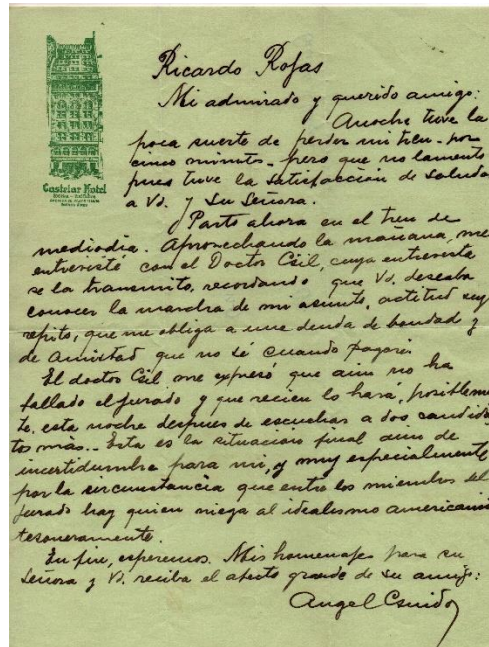 Castelar Hotel
Buenos Aires
Ricardo Rojas
Mi admirado y querido amigo:
Anoche tuve la
poca suerte de perder mi tren - por
cinco minutos - pero que no lamento
pues tuve la satisfacción de saludar
a Vd. y Su Señora.
Parto ahora en el tren de
mediodía. Aprovechando la mañana, me
entrevisté con el Doctor Csil, cuya entrevista
se la transmito, recordando que Vd. deseaba
conocer la marcha de mi asunto, actitud suya
repito, que me obliga a una deuda de bondad y
de amistad que no sé cuando pagaré.
El doctor Csil, me expresó que aun no ha
fallado el jurado y que recien lo hará, posibleme
te, esta noche despues de escuchar a dos candida
tos más. Esta es la situacion final aun de
incertidumbre para mi, y muy especialmente
por la circunstancia que entre los miembros del
jurado hay quien niega al idealismo americanis
tesoneramente.
En fin, esperemos. Mis homenajes para su
Señora y Vd. reciba el afecto grande de su amigo:
Angel Csuido